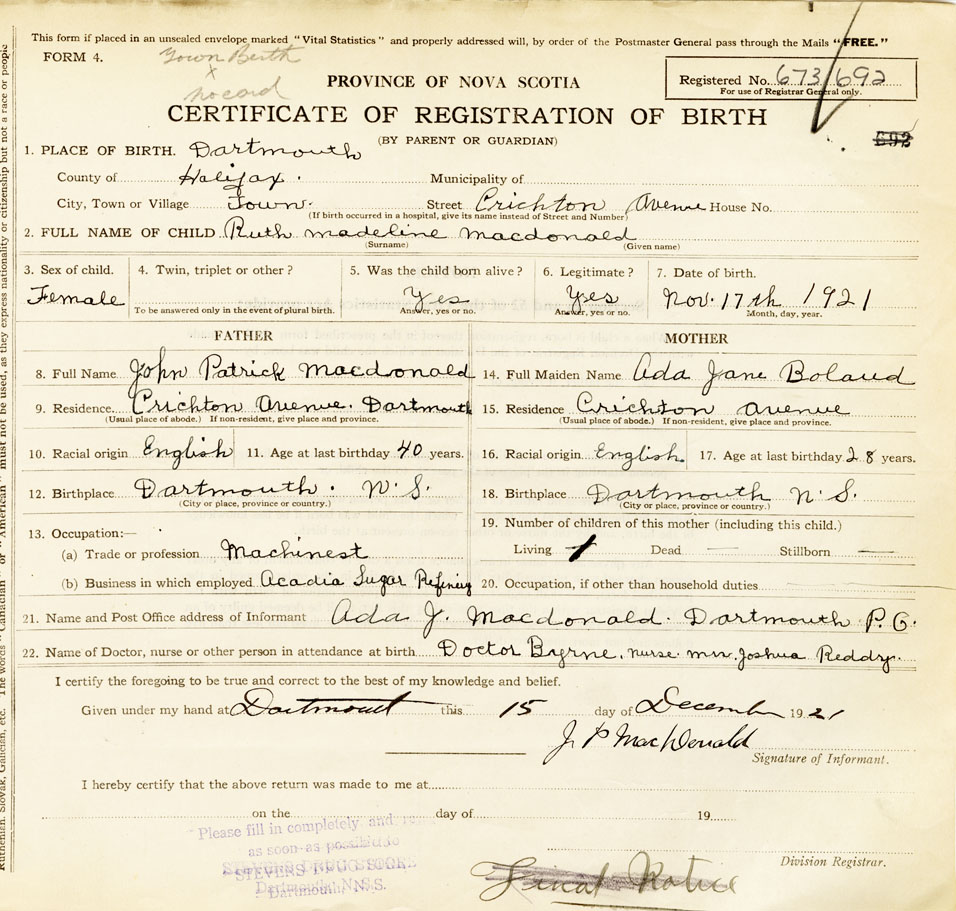 This form if placed in an unsealed envelope marked "Vital Statistics" and properly addressed will, by order of the Postmaster General pass through the Mails "FREE."
FORM 4.
Town Berth
x
no card
PROVINCE OF NOVA SCOTIA
Registered No. 673/692
For use of Registrar General only.
CERTIFICATE OF REGISTRATION OF BIRTH
692
(BY PARENT OR GUARDIAN)
1. PLACE OF BIRTH. Dartmouth
County of Halifax. Municipality of
City, Town or Village Town. Street Crichton Avenue House No.
(If birth occurred in a hospital, give its name instead of Street and Number)
2. FULL NAME OF CHILD Ruth madeline macdonald
(Surname) (Given name)
3. Sex of child. 4. Twin, triplet or other? 5. Was the child born alive? 6. Legitimate? 7. Date of birth.
Female Yes Yes Nov. 17th 1921
To be answered only in the event of plural birth. Answer, yes or no. Answer, yes or no. Month, day, year.
FATHER MOTHER
8. Full Name John Patrick Macdonald 14. Full Maiden Name Ada Jane Boland
9. Residence Crichton Avenue. Dartmouth 15. Residence Crichton avenue
(Usual place of abode.) If non-resident, give place and province. (Usual place of abode.) If non-resident, give place and province.
10. Racial origin English 11. Age at last birthday 40 years. 16. Racial origin English 17. Age at last birthday 28 years.
12. Birthplace Dartmouth. N.S. 18. Birthplace Dartmouth N.S.
(City or place, province or country.) (City or place, province or country.)
19. Number of children of this mother (including this child.)
13. Occupation:—
(a) Trade or profession Machinest Living 1 Dead — Stillborn —
(b) Business in which employed Acadia Sugar Refining 20. Occupation, if other than household duties
21. Name and Post Office address of Informant Ada J. Macdonald. Dartmouth P.O.
22. Name of Doctor, nurse or other person in attendance at birth Doctor Byrne. nurse. mrs. Joshua Reddy.
I certify the foregoing to be true and correct to the best of my knowledge and belief.
Given under my hand at Dartmouth this 15 day of December 1921
J P MacDonald
Signature of Informant.
I hereby certify that the above return was made to me at
on the day of 19
Please fill in completely and
as soon as possible to
STEVENS DRUG STORE
Dartmouth, N.S.
Division Registrar.
Final Notice